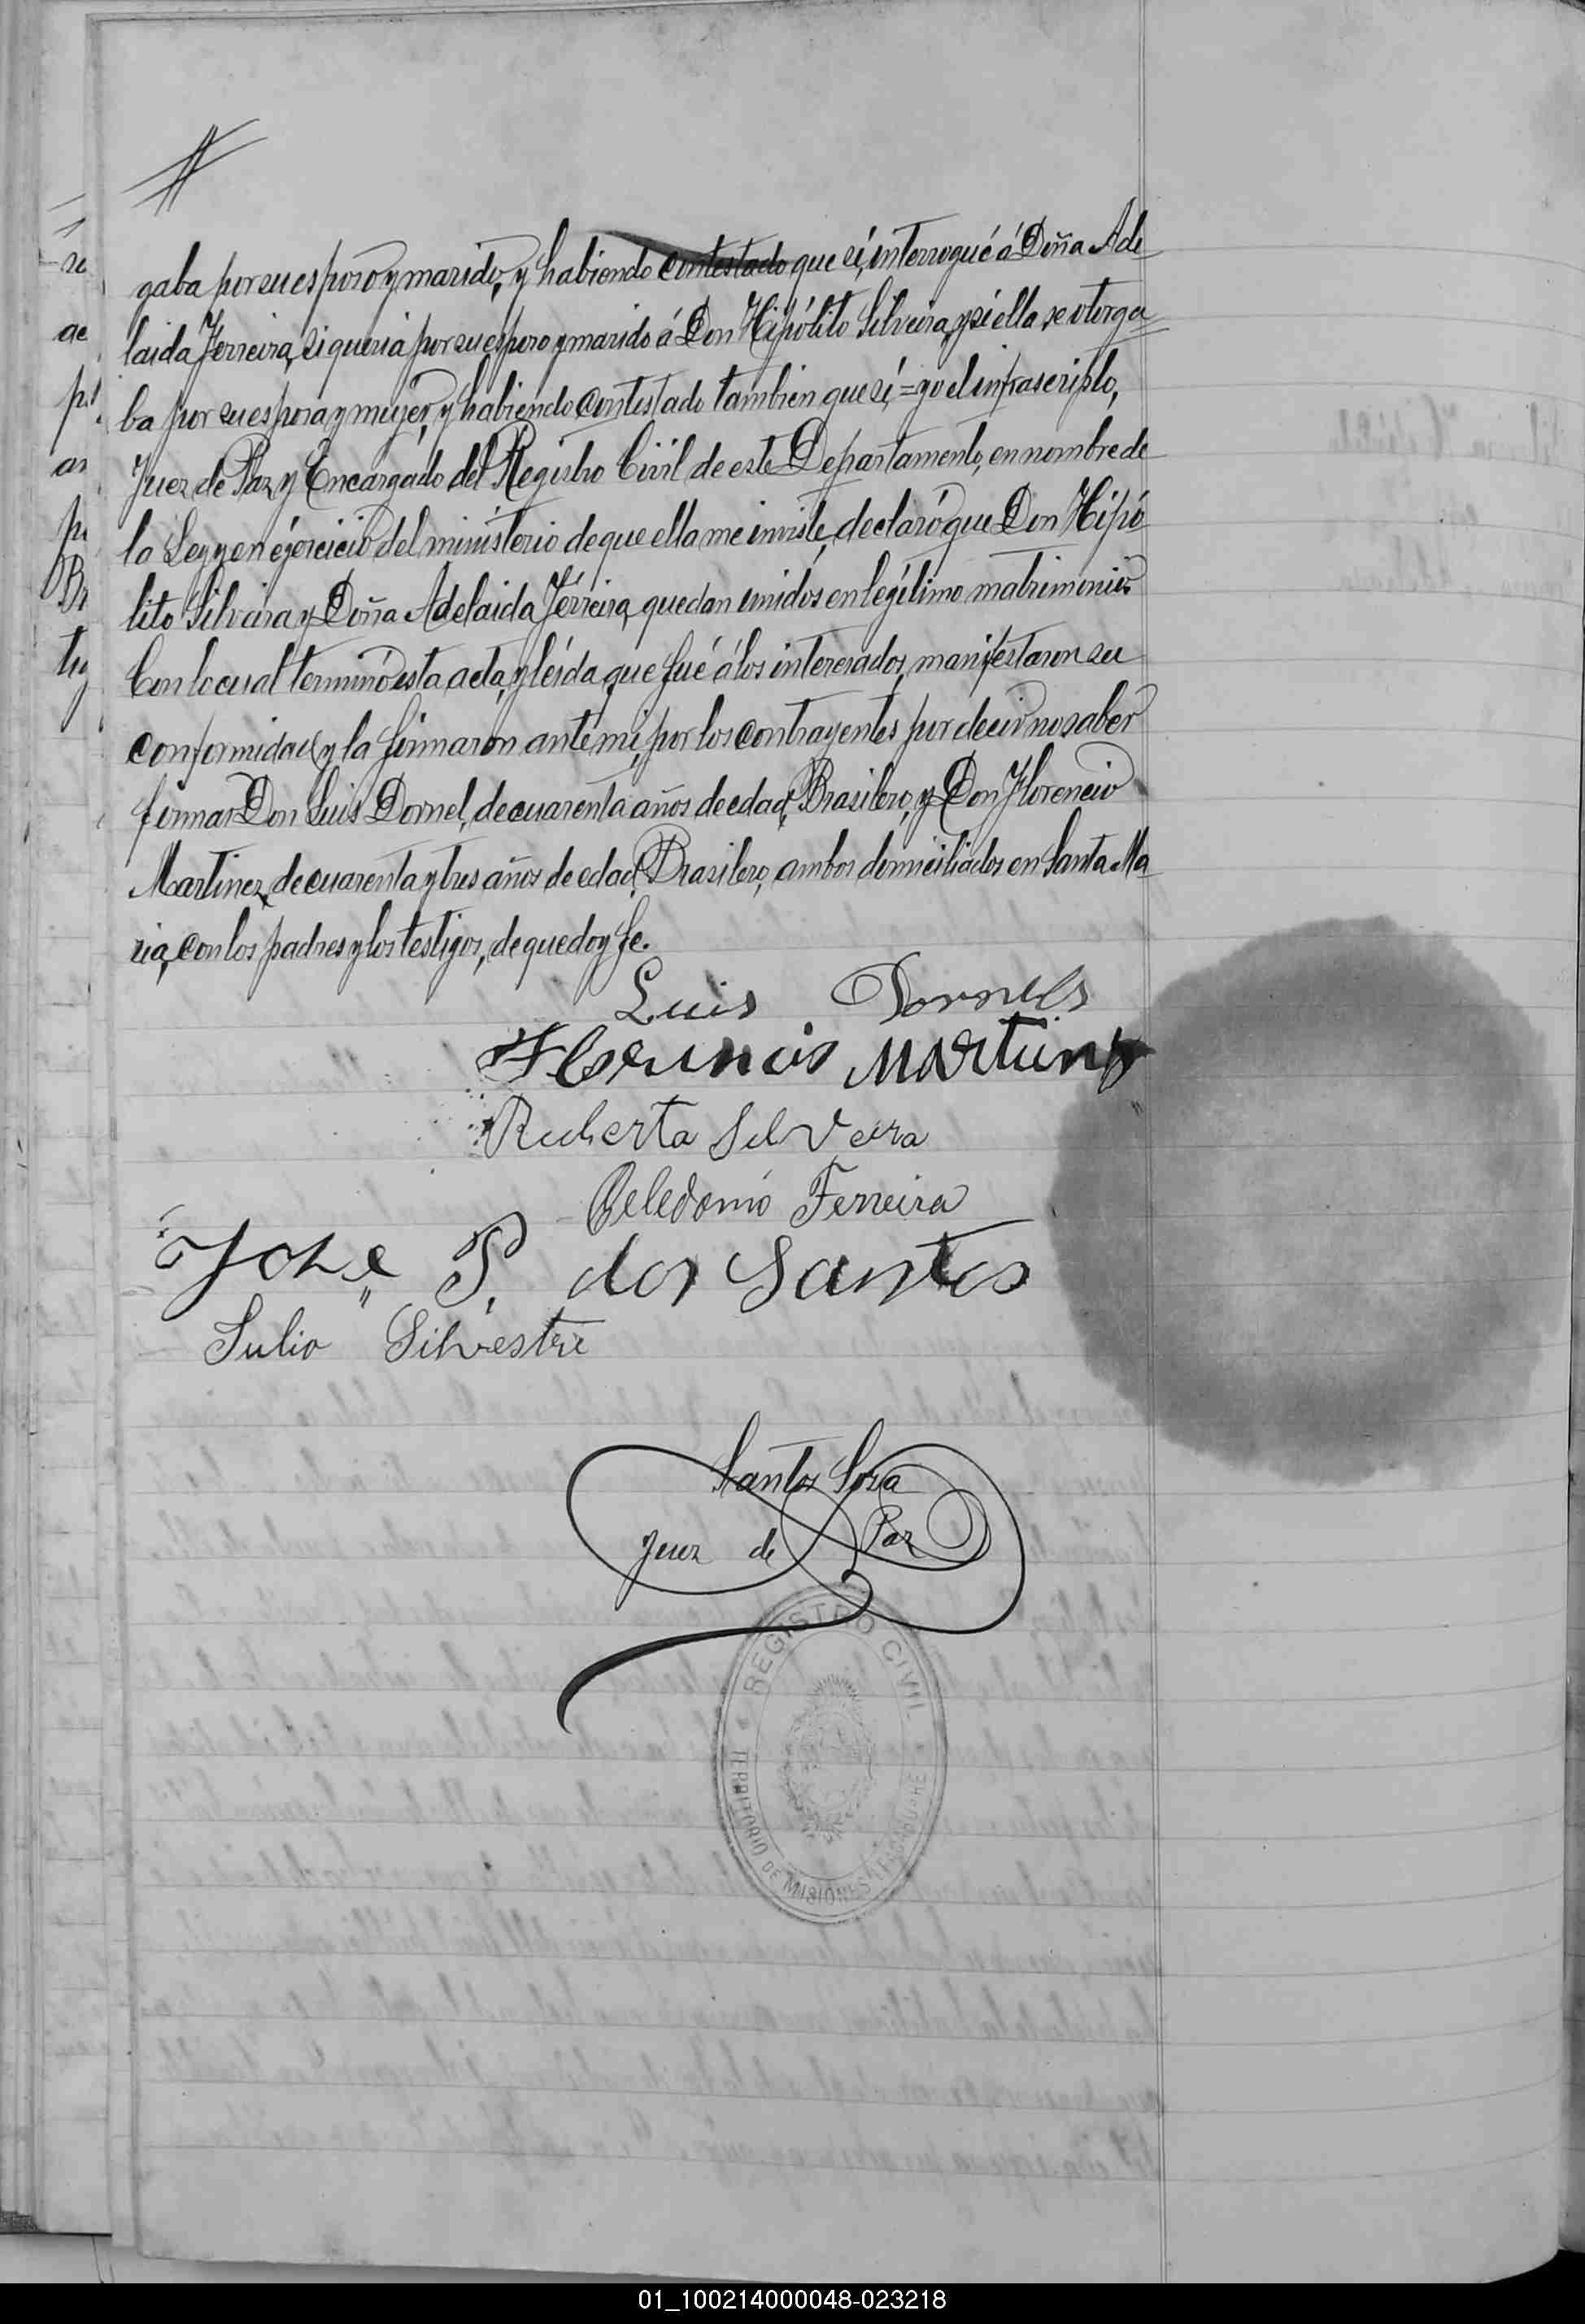 gaba por su esposo y marido, y habiendo contestado que sí, interrogué á Doña Ade
laida Ferreira, si queria por su esposo y marido á Don Hipólito Silveira, y si ella, se otorga
ba por su esposa y mujer, y habiendo contestado tambien que sí = yo el infrascripto,
Juez de Paz y Encargado del Registro Civil de este Departamento, en nombre de
la Ley y en ejercicio del ministerio de que ella me inviste, declaró que Don Hipó
lito Silveira y Doña Adelaida Ferreira, quedan unidos en legítimo matrimonio
Con lo cual terminó esta acta, y leída que fué á los interesados, manifestaron su
conformidad y la firmaron ante mí, por los contrayentes por decir no saber
firmar Don Luis Dornel, de cuarenta años de edad, Brasilero, y Don Florencio
Martinez, de cuarenta y tres años de edad, Brasilero, ambos domiciliados en Santa Ma
ria, con los padres y los testigos, de que doy fe.
Luis Dornels
Florencio Martins
Ruberta Silveira
Celedonio Ferreira
José P. dos Santos
Julio Silvestre
Santos Sosa
Juez de Paz
REGISTRO CIVIL
TERRITORIO DE MISIONES
01_100214000048-023218